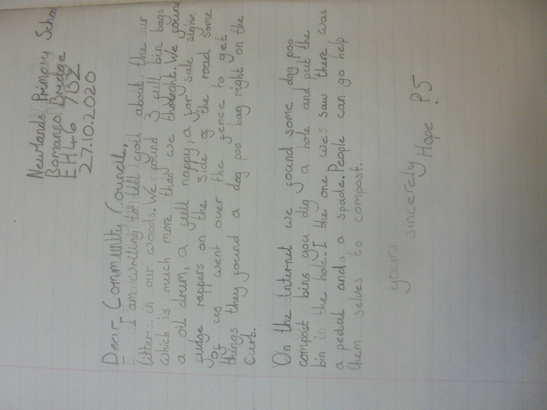 Newlands Primary School
Romanno Bridge
EH46 7BZ
27.10.2020
Dear Community Council,
I am writing to tell you about the our
litter in our woods. We found 3 full bin bags
which is much more than we thought. We found
a oil drum, a full nappy, a for sale sign,
fudge rappars on the side of the road. Some
of us went over the fence to get
things they found a dog poo bag right on the
curb.
On the Internet we found some dog poo
compost bins you dig a hole and put the
bin in the hole. I the one we saw there was
a pedal and a spade. People can go help
them selves to compost.
yours sincerely
Hope P5